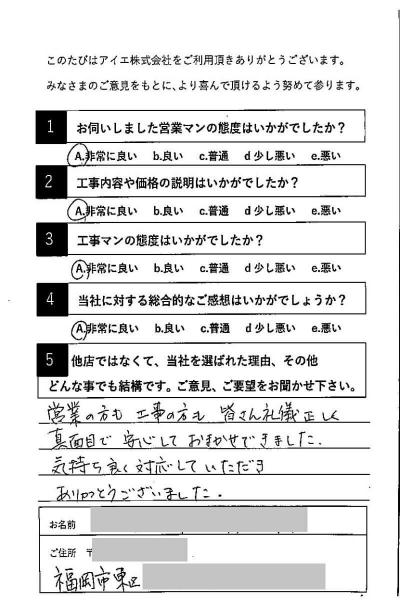 このたびはアイエ株式会社をご利用頂きありがとうございます。
みなさまのご意見をもとに、より喜んで頂けるよう努めて参ります。
1 お伺いしました営業マンの態度はいかがでしたか？
A.非常に良い b.良い c.普通 d少し悪い e.悪い
2 工事内容や価格の説明はいかがでしたか？
A.非常に良い b.良い c.普通 d少し悪い e.悪い
3 工事マンの態度はいかがでしたか？
A.非常に良い b.良い c.普通 d少し悪い e.悪い
4 当社に対する総合的なご感想はいかがでしょうか？
A.非常に良い b.良い c.普通 d少し悪い e.悪い
5 他店ではなくて、当社を選ばれた理由、その他
どんな事でも結構です。ご意見、ご要望をお聞かせ下さい。
営業の方も 工事の方も 皆さん礼儀正しく
真面目で 安心して おまかせできました.
気持ち良く対応していただき
ありがとうございました.
お名前
ご住所 〒
福岡市東区